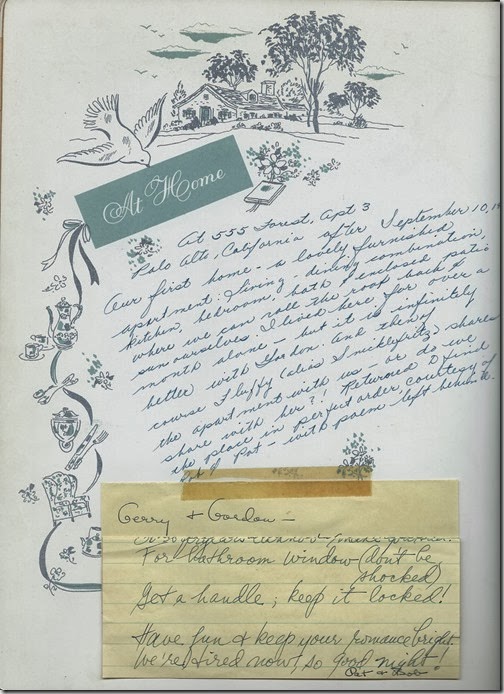 At Home
At 555 Forest, Apt 3
Palo Alto, California after September 10, 19
Our first home - a lovely furnished
apartment: living - dining combination,
kitchen, bedroom, bath & enclosed patio
where we can roll the roof back &
sun ourselves. I lived here for over a
month alone - but it is infinitely
better with Gordon. And then, of
course Fluffy (alias Snicklefritz) shares
the apartment with us - or do we
share with her?! Returned to find
the place in perfect order, courtesy of
Pat - with poem left behind.
Gerry & Gordon -
For bathroom window (don't be
shocked)
Get a handle; keep it locked!
Have fun & keep your romance bright
We're tired now, so good night!
Pat & Bob